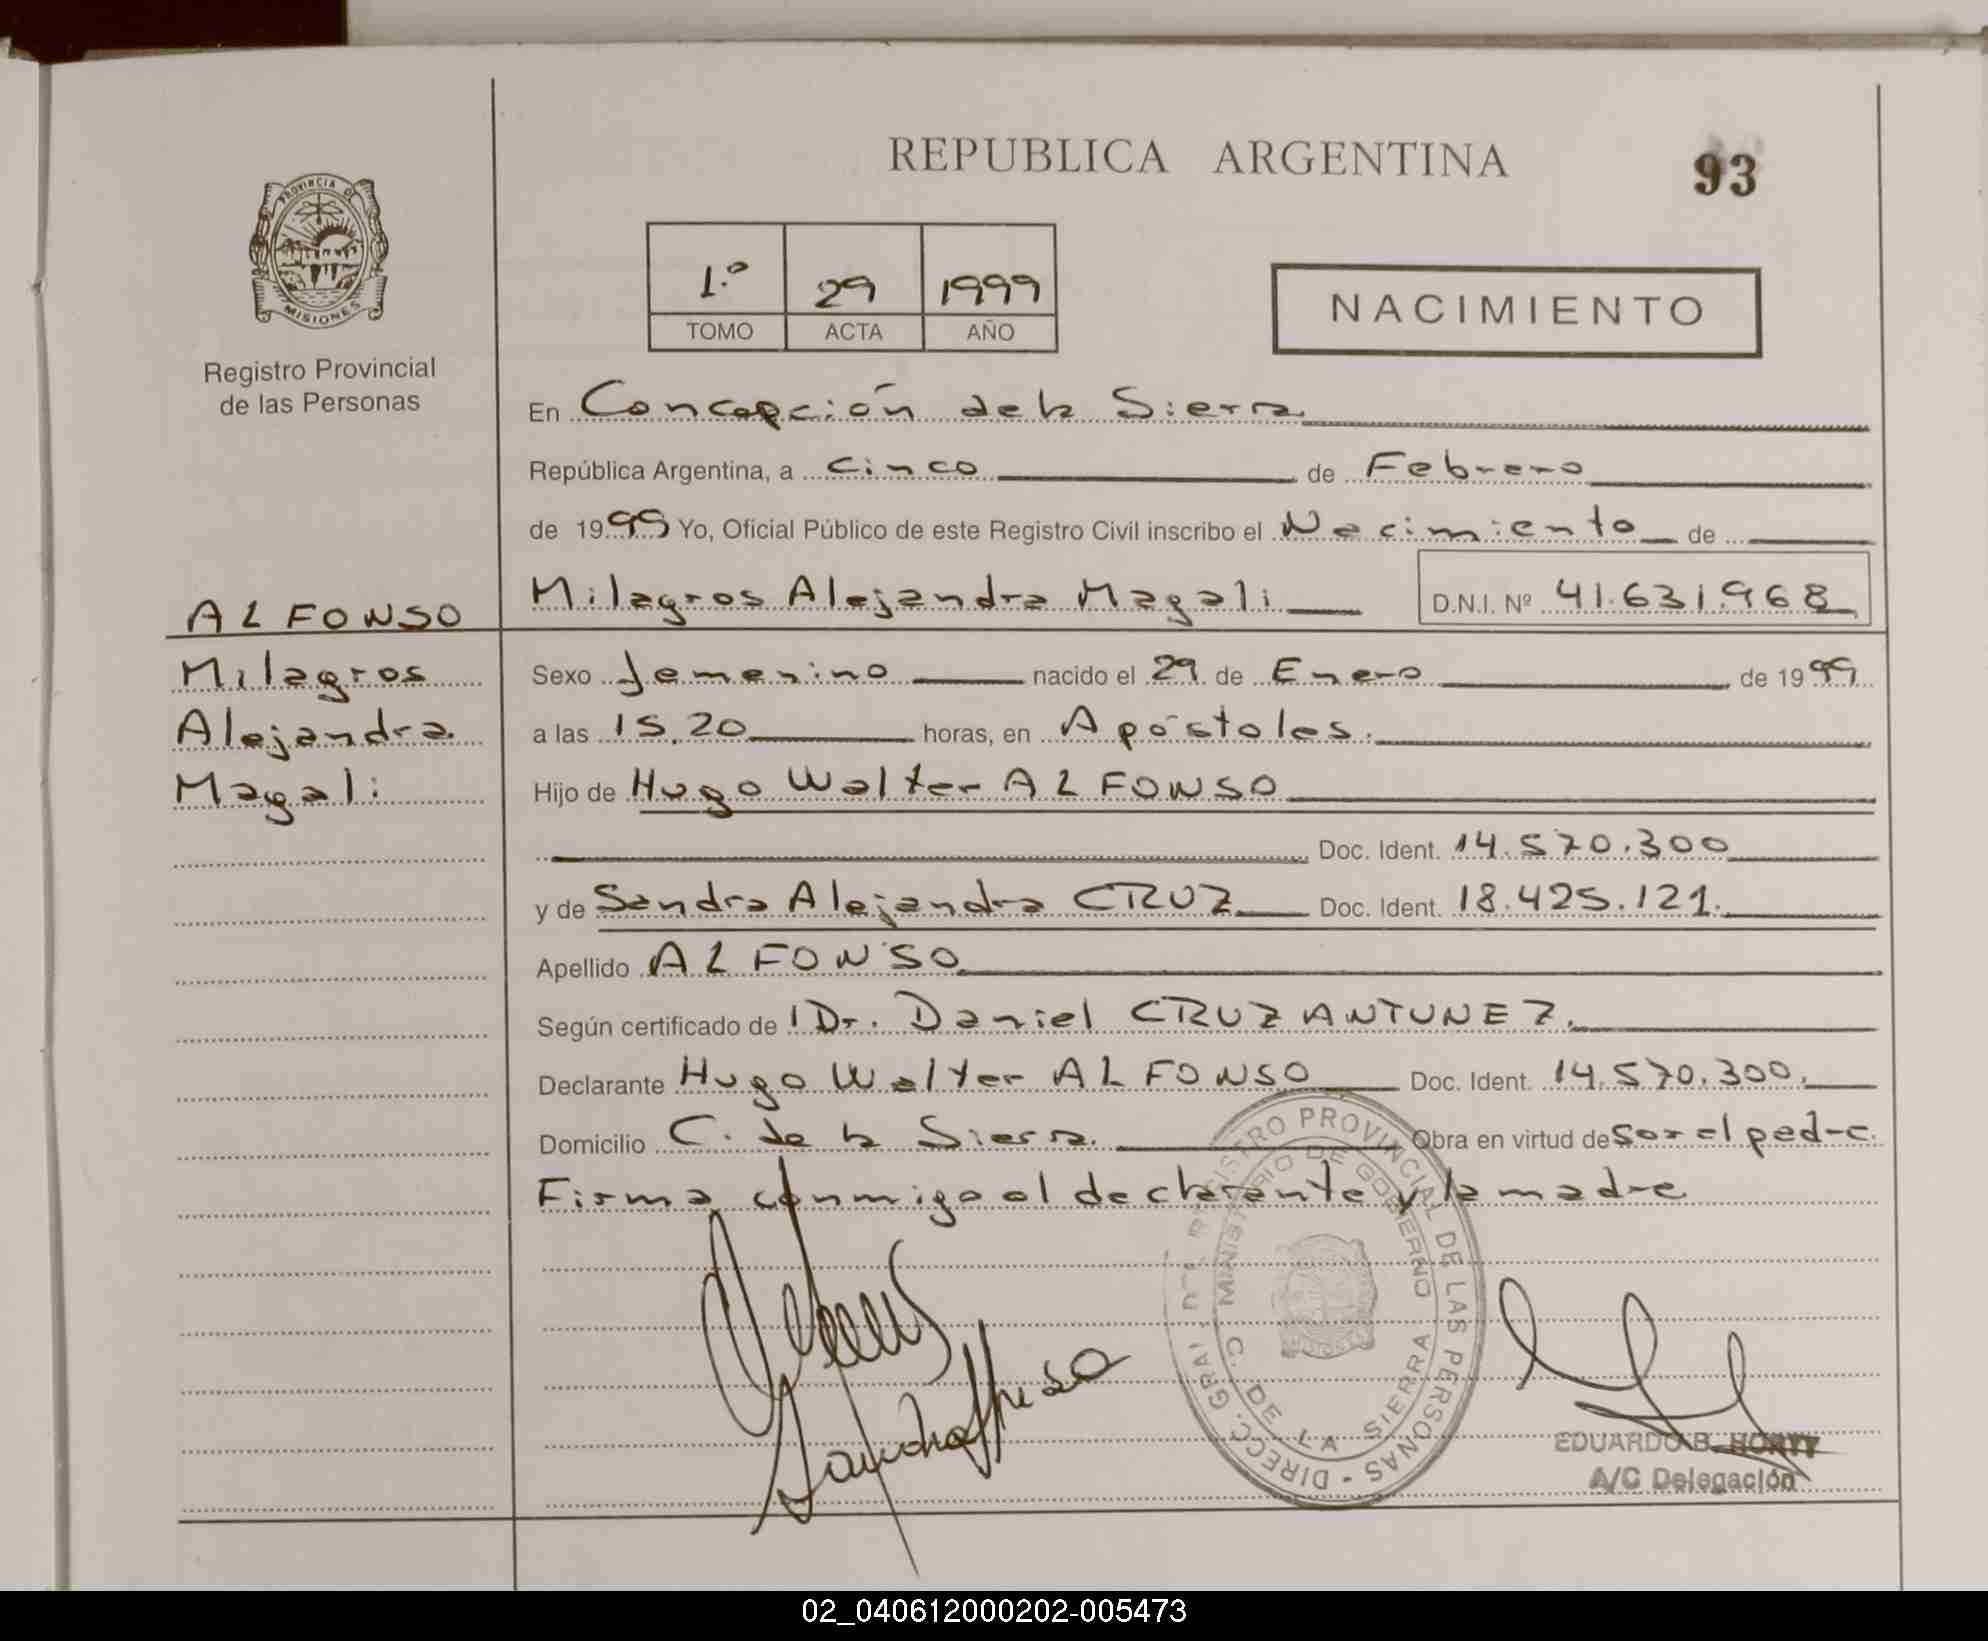 REPUBLICA ARGENTINA
93
PROVINCIA DE MISIONES
Registro Provincial
de las Personas
1.º 29 1999
TOMO ACTA AÑO
NACIMIENTO
En Concepción de la Sierra
República Argentina, a Cinco de Febrero
de 1999 Yo, Oficial Público de este Registro Civil inscribo el Nacimiento de
Milagros Alejandra Magali D.N.I. Nº 41.631.968
ALFONSO
Milagros
Alejandra
Magali
Sexo femenino nacido el 29 de Enero de 1999
a las 15.20 horas, en Apóstoles.
Hijo de Hugo Walter ALFONSO
Doc. Ident. 14.570.300
y de Sandra Alejandra CRUZ Doc. Ident. 18.425.121.
Apellido ALFONSO
Según certificado de Dr. Daniel CRUZ ANTUNEZ.
Declarante Hugo Walter ALFONSO Doc. Ident. 14.570.300.
Domicilio C. de la Sierra. Obra en virtud de ser el padre.
Firma conmigo el declarante y la madre
REGISTRO PROVINCIAL DE LAS PERSONAS - DIRECC. GRAL.
MINISTERIO DE GOBIERNO
C. DE LA SIERRA
EDUARDO B.
A/C Delegación
02_040612000202-005473